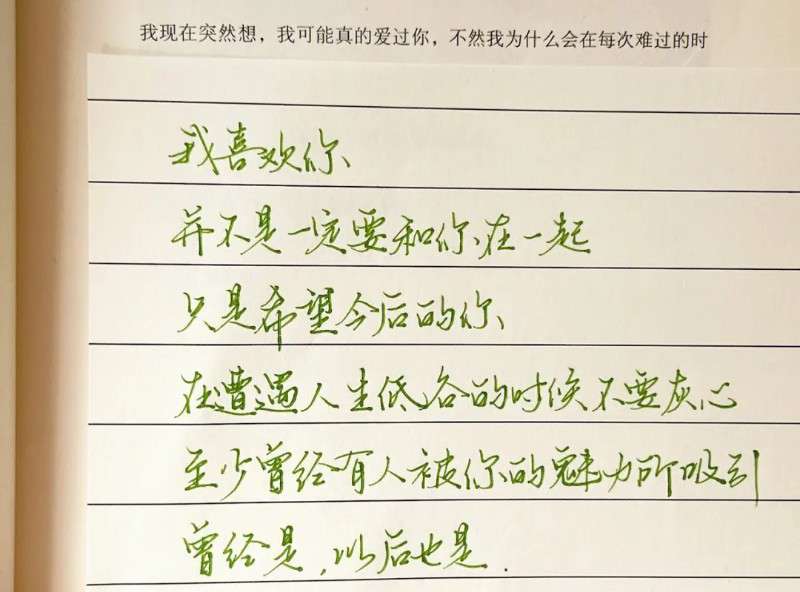 我现在突然想，我可能真的爱过你，不然我为什么会在每次难过的时
我喜欢你
并不是一定要和你在一起
只是希望今后的你
在遭遇人生低谷的时候不要灰心
至少曾经有人被你的魅力所吸引
曾经是，以后也是.